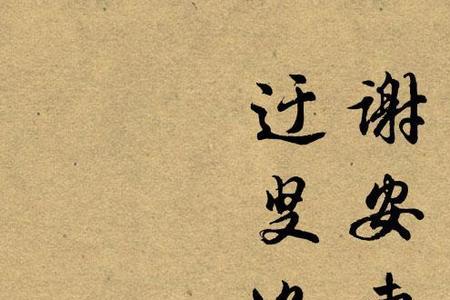 谢安
迂叟